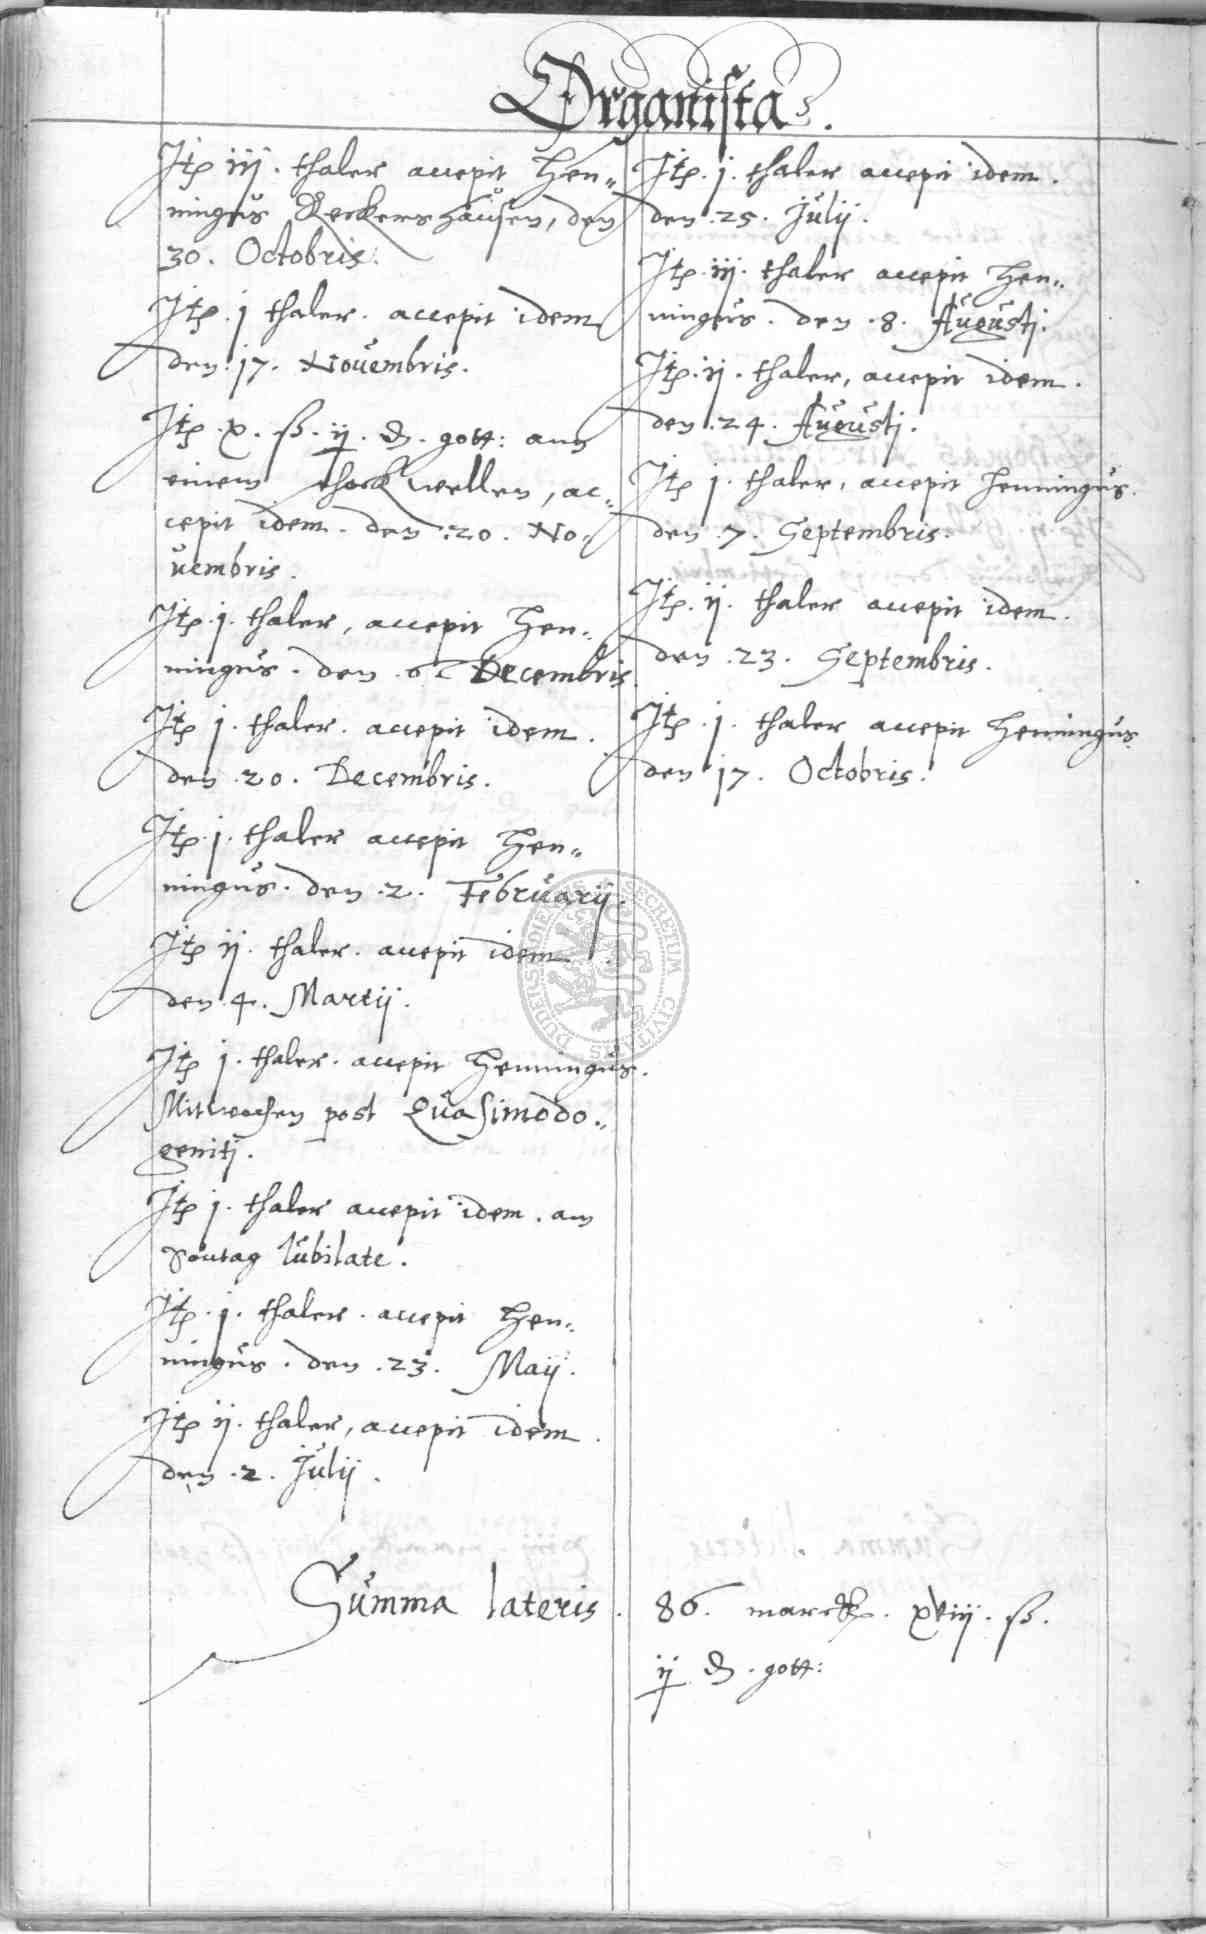 Organista.
Itp iij. thaler accepit Hen„
ningus Reckershausen, den
30. Octobris.
Itp. j thaler. accepit idem
den 17. Novembris.
Itp. x. ß. ij. ₰. gott: ann
einem schock wellen, ac„
cepit idem. den .20. No„
uembris.
Itp. j. thaler, accepit Hen„
ningus. den .6. Decembris.
Itp j. thaler. accepit idem.
den .20. Decembris.
Itp. j. thaler accepit Hen„
ningus. den .2. Februarij.
Itp ij. thaler. accepit idem
den .4. Martij.
Itp j. thaler. accepit Henningus.
Mitwochen post Quasimodo„
genitj.
Itp j. thaler accepit idem. am
Sontag Iubilate.
Itp. j. thaler. accepit Hen„
ningus. den .23. Maij.
Itp ij. thaler, accepit idem.
den .2. Julij.
Itp. j. thaler accepit idem.
den .25. Julij.
Itp. iij. thaler accepit Hen„
ningus. den .8. Augustj.
Itp. ij. thaler, accepit idem.
den .24. Augustj.
Itp j. thaler, accepit Henningus.
den .7. Septembris.
Itp. ij. thaler accepit idem.
den .23. Septembris.
Itp. j. thaler accepit Henningus.
den 17. Octobris.
Summa lateris. 86. marck. xviij. ß.
ij ₰. gott:
SECRETUM CIVITATIS DUDERSTADIENSIS